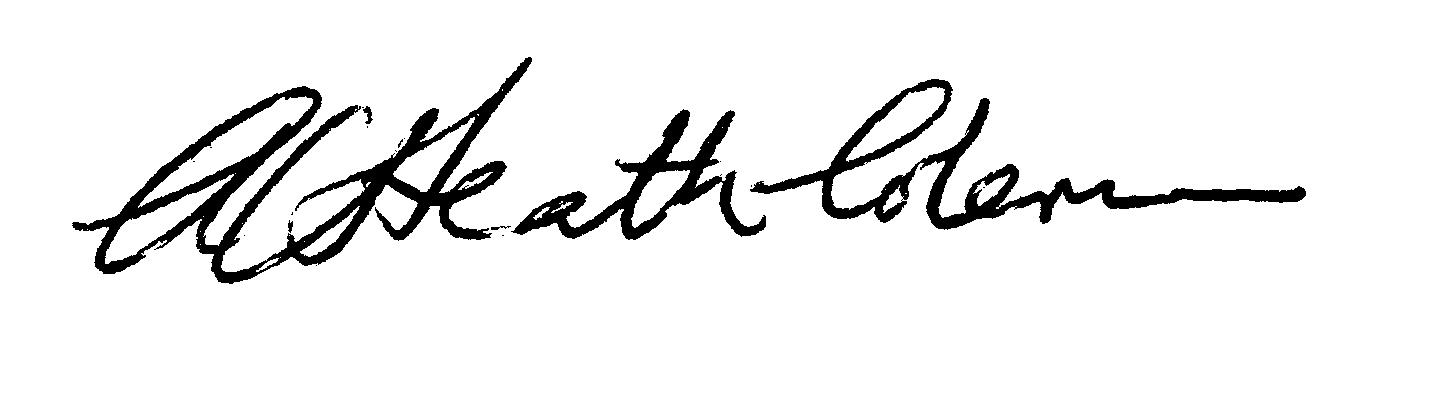 Heath Coleman